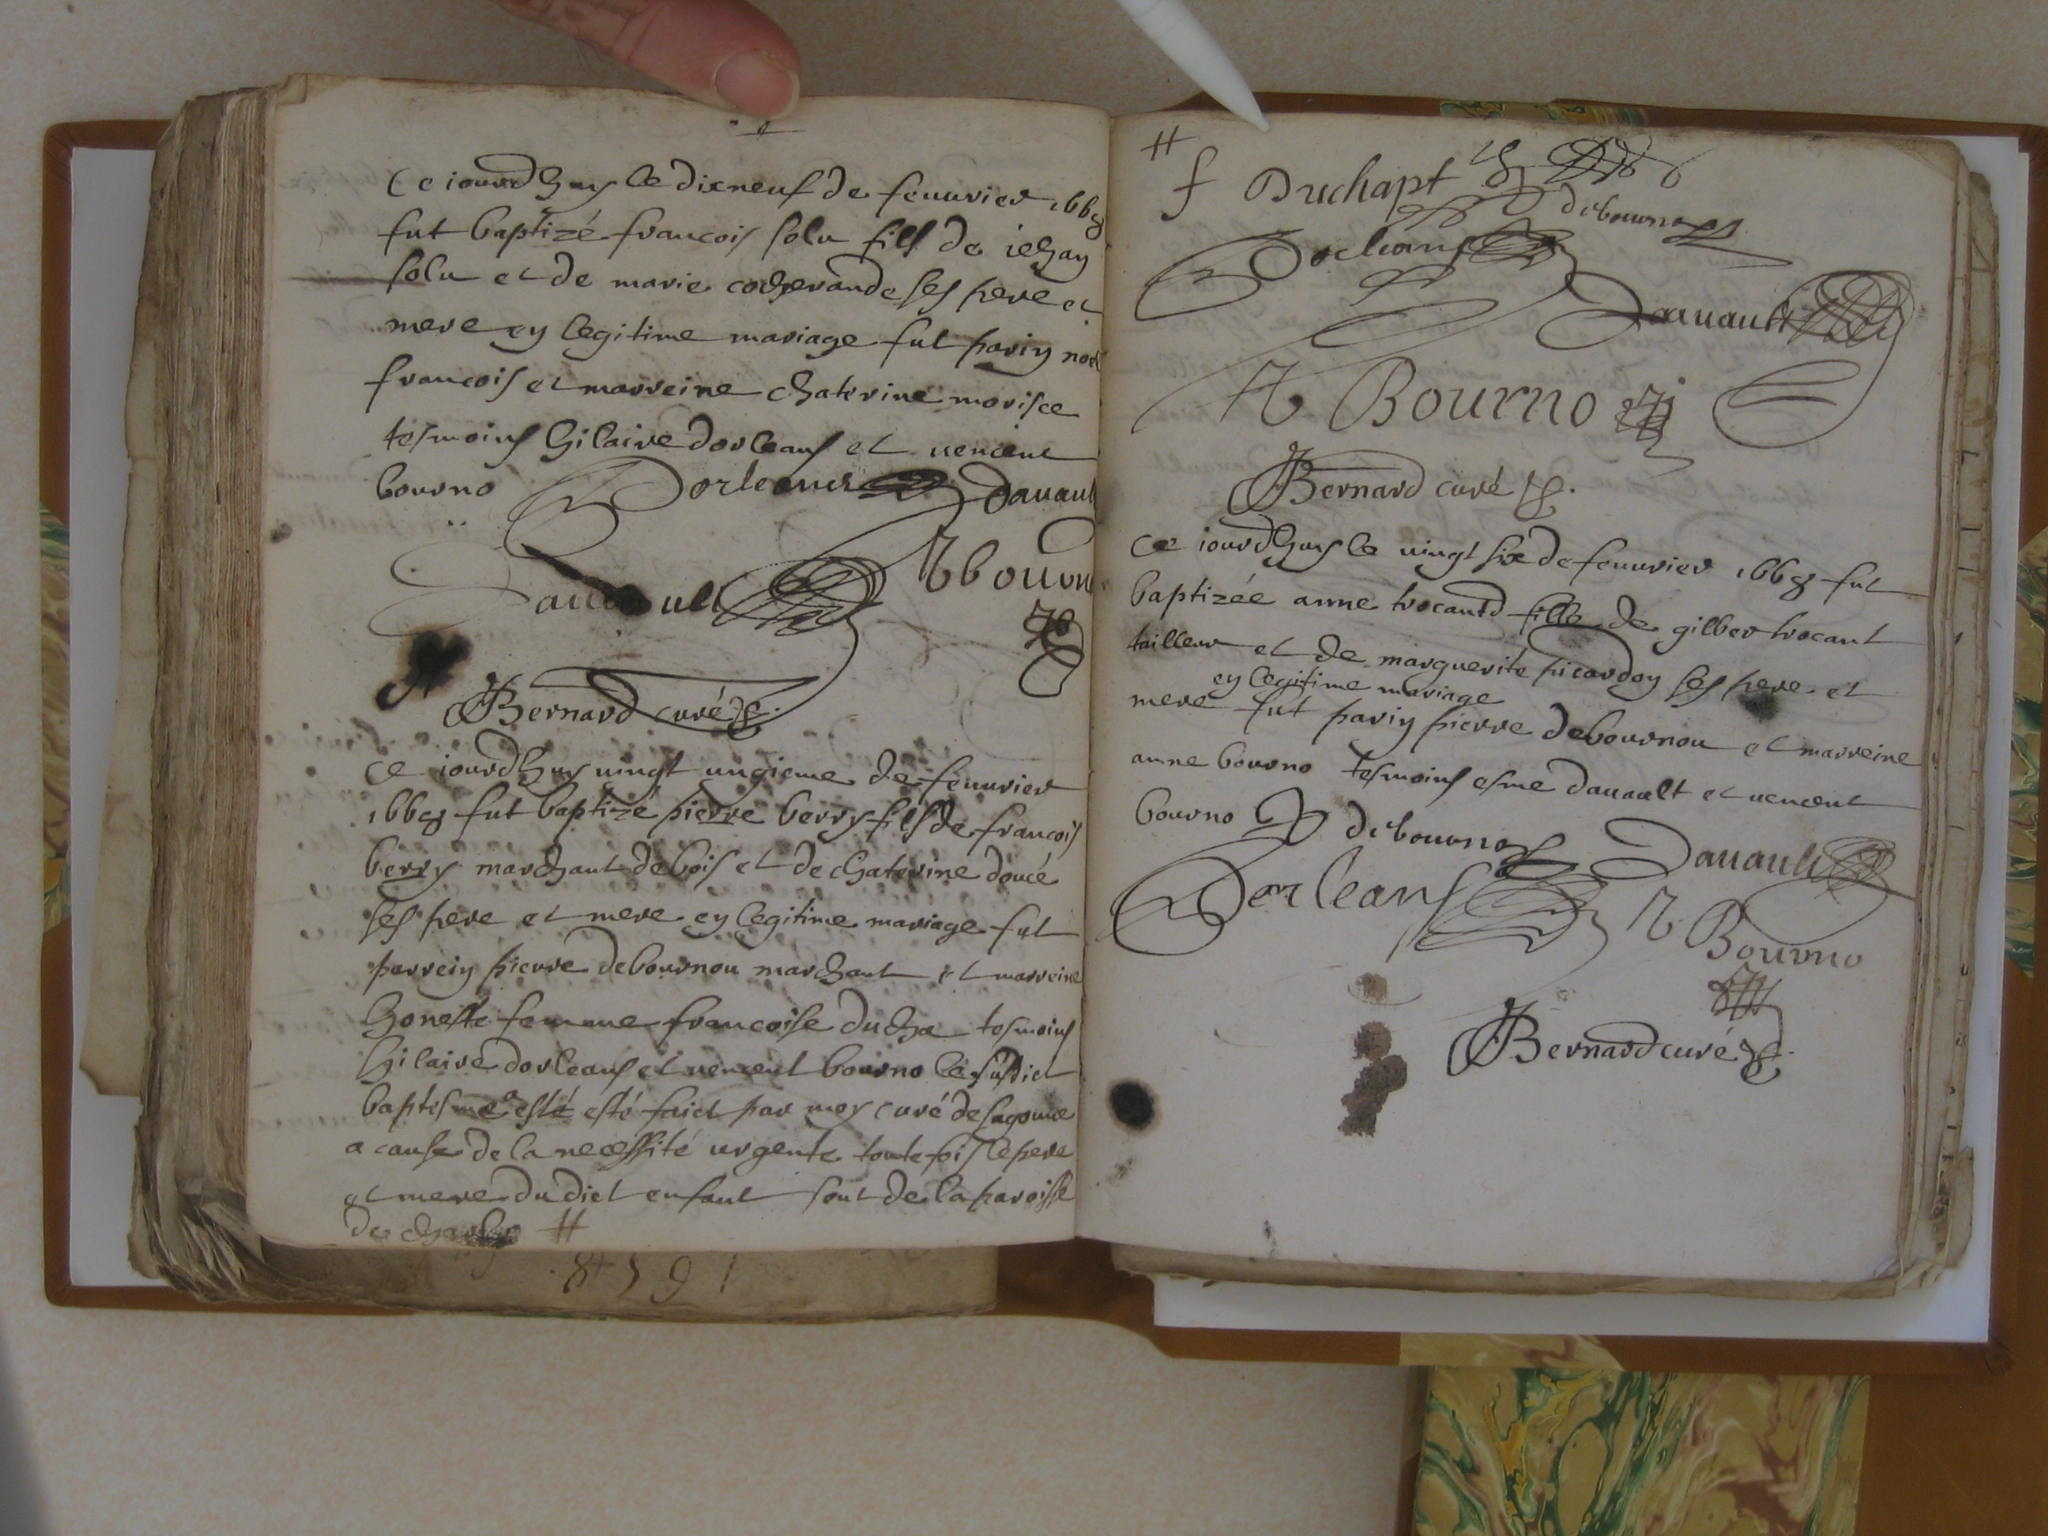 Ce iourdhuy le dixneuf de feuurier 1668
fut baptizé francois solu fils de iehan
solu et de marie codgerande ses pere et
mere en legitime mariage fut parin noel
francois et marreine chaterine morisce
tesmoins hilaire dorleans et uencent
bourno Dorleans Dauault
Dauault Rbourno
Bernard curé
Ce iourdhuy uingt ungieme de feuurier
1668 fut baptizé pierre berry fils de francois
berry marchant de bois et de chaterine doucé
ses pere et mere en legitime mariage fut
parrein pierre debournou marchant et marreine
honeste femme francoise ducha tesmoins
hilaire dorleans et uencent bourno le susdict
baptesme esté faict par moy curé de sagonne
a cause de la necessité urgente toutefois le pere
et mere du dict enfant sont de la paroisse
de #
8591
#
f Duchapt
debourno
Dorleans
Dauault
Bourno
Bernard curé
Ce iourdhuy le uingt six de feuurier 1668 fut
baptizée anne trocantd fille de gilber trocant
tailleur et de marguerite picardon ses pere et
en legitime mariage
mere fut parin pierre debournou et marreine
anne bourno tesmoins esme dauault et uencent
bourno debourno Dauault
Dorleans Bourno
Bernard curé